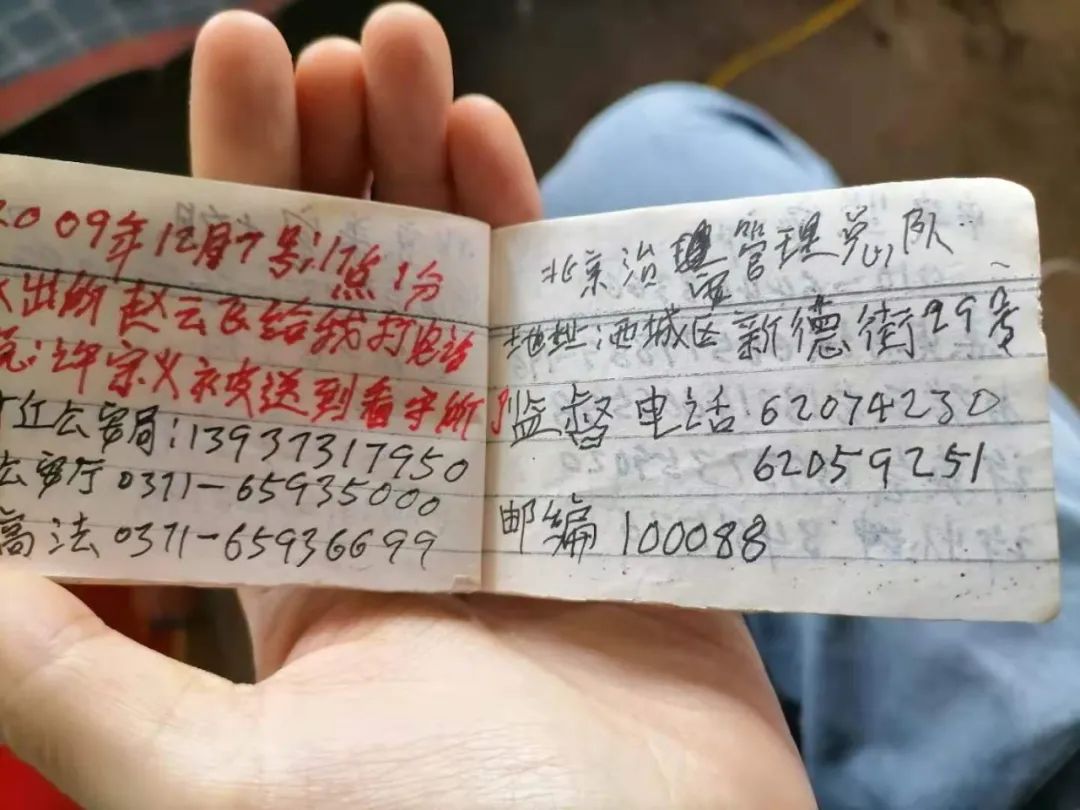 2009年12月7号:17点1分
出所赵云飞给我打电话
说:许宗义被送到看守所了
公安局:13937317950
公安厅 0371-65935000
高法 0371-65936699
北京治安管理总队
地址:西城区新德街29号
监督电话:62074230
62059251
邮编 100088